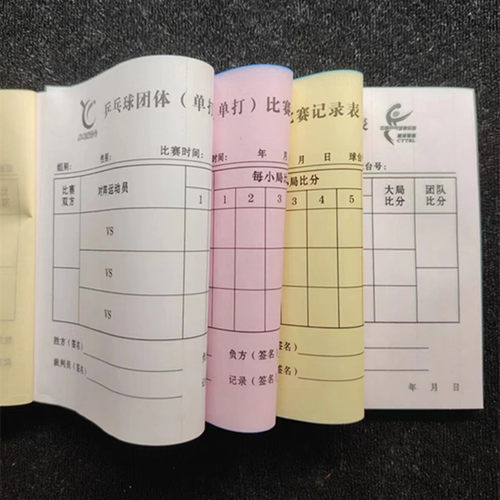 乒乓球团体（单打）比赛记录表
CTTSL
组别： 类别： 比赛时间： 年 月 日 球台号：
比赛双方 对阵运动员 每小局比分 大局比分 团队比分
1 2 3 4 5
VS
VS
VS
胜方（签名） 负方（签名）
裁判员（签名） 记录（签名）
年 月 日